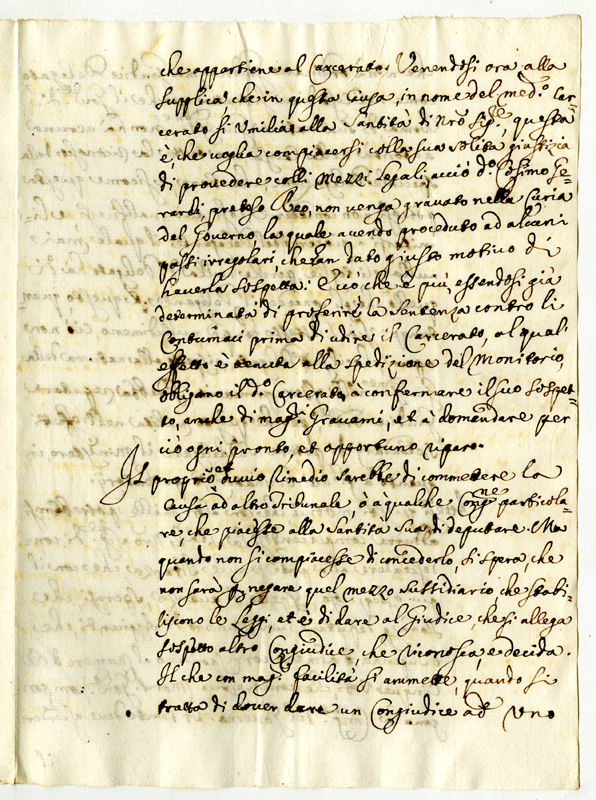 che appartiene al Carcerato. Venendosi ora alla
supplica, che in questa Causa, in nome del med.o Car-
cerato si Umilia alla Santità di Nro Sig.re, questa
è, che voglia compiacersi colla sua solita giustizia
di provedere colli Mezzi Legali, acciò d.o Cosimo Ge=
rardi, preteso Reo, non venga gravato nella Curia
del Governo, la quale avendo proceduto ad alcuni
passi irregolari, che han dato giusto motivo di
haverla sospetta: E ciò che è più, essendosi già
determinata di proferire la Sentenza contro li
Contumaci prima di udire il Carcerato, al qual'
effetto è venuta alla spedizione del Monitorio,
obligano il d.o Carcerato, à confermare il suo sospet=
to, anche di mag.ri Gravami, et à domandare per
ciò ogni pronto, et opportuno riparo.
Il proprio, et ovvio Rimedio sarebbe di commettere la
Causa ad altro Tribunale, ò à qualche Cong.ne particola-
re, che piacesse alla Santità Sua di deputare. Ma
quando non si compiacesse di concederlo, si spera, che
non sarà p negare quel mezzo sussidiario che stabi-
liscono le Leggi, et è di dare al Giudice, che si allega
sospetto altro Congiudice, che riconosca, e decida.
Il che con mag.r facilità si ammette, quando si
tratta di dover dare un Congiudice ad Uno